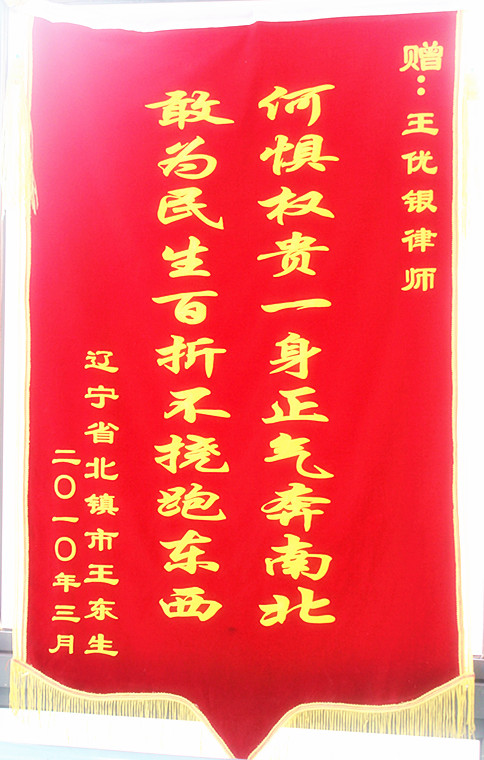 赠：王优银律师
何惧权贵一身正气奔南北
敢为民生百折不挠跑东西
辽宁省北镇市王东生
二〇一〇年三月